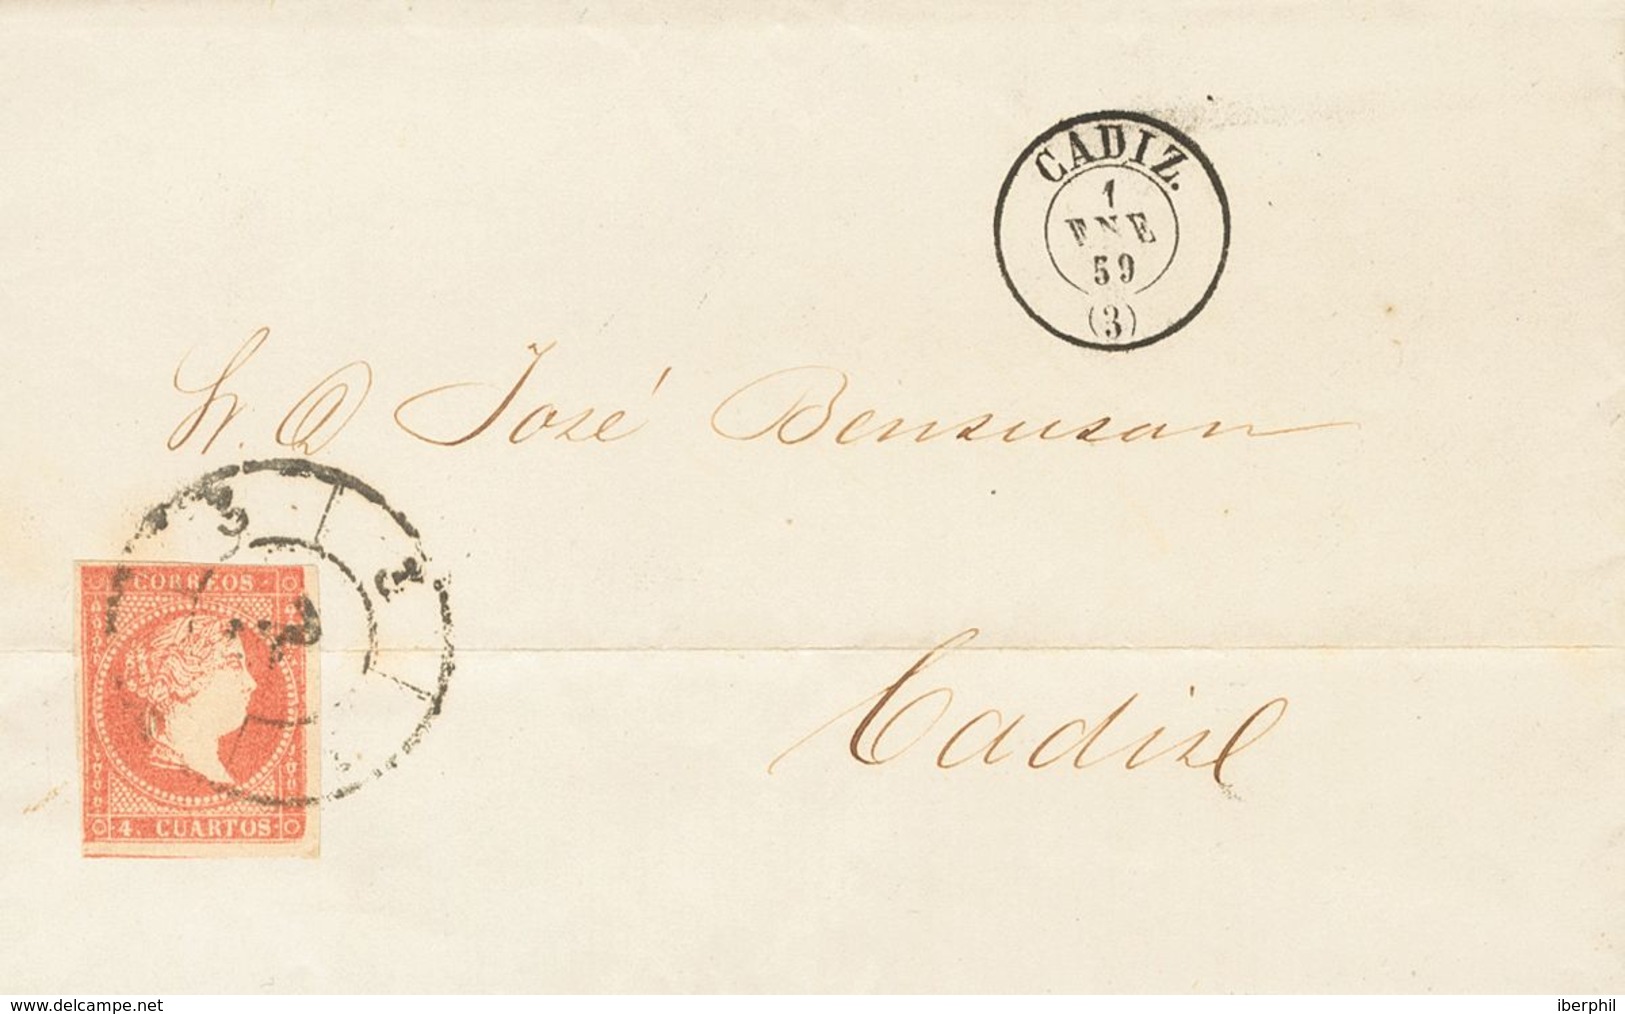 CADIZ.
1
ENE
59
(3)
Sr. D José Bensusan
CORREOS
4. CUARTOS
Cadiz
www.delcampe.net
iberphil